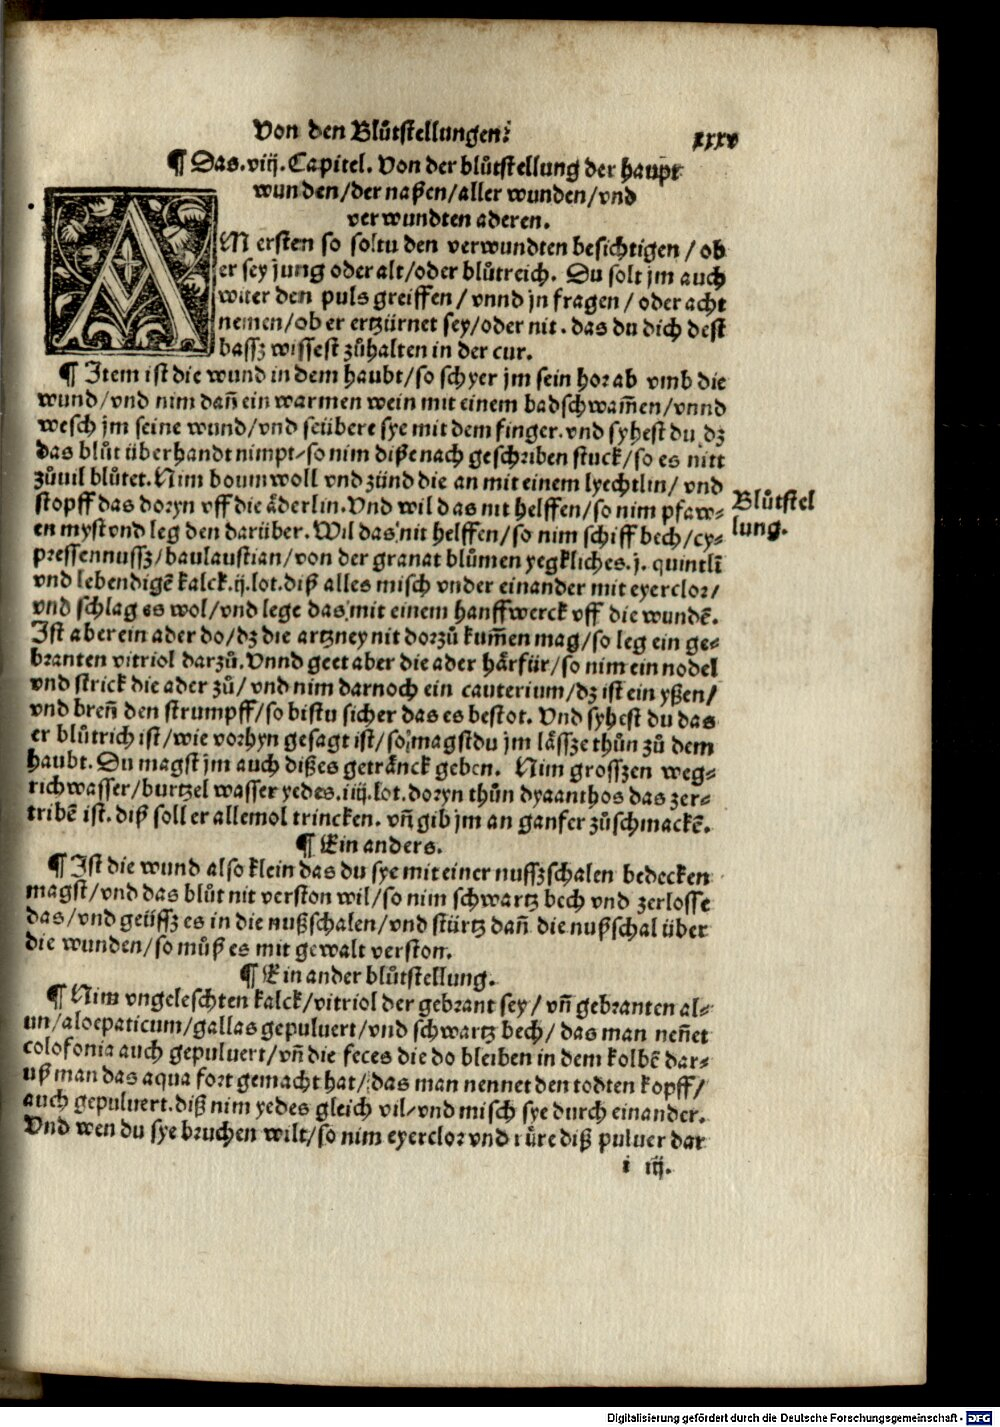 Von den Blůtstellungen.
xxxv
¶ Das.viij.Capitel. Von der blůtstellung der haupt
wunden/der naßen/aller wunden/vnd
verwundten aderen.
AM ersten so soltu den verwundten besichtigen / ob
er sey jung oder alt/oder blůtreich. Du solt jm auch
witer den puls greiffen / vnnd jn fragen / oder acht
nemen/ob er ertzürnet sey/oder nit. das du dich dest
bassz wissest zůhalten in der cur.
¶ Item ist die wund in dem haubt/so schyer jm sein hor ab vmb die
wund/vnd nim dañ ein warmen wein mit einem badschwam̃en/vnnd
wesch jm seine wund/vnd seübere sye mit dem finger. vnd syhest du dz
das blůt überhandt nimpt/so nim diße nach geschriben stuck/so es nitt
zůuil blůtet. Nim boumwoll vnd zünd die an mit einem lyechtlin/ vnd
stopff das doryn vff die äderlin. Vnd wil das nit helffen/so nim pfaw-
en myst vnd leg den darüber. Wil das nit helffen/so nim schiff bech/cy-
pressennussz/baulaustian/von der granat blůmen yegkliches.j. quintlī
vnd lebendigē kalck.ij.lot.diß alles misch vnder einander mit eyerclor/
vnd schlag es wol/vnd lege das mit einem hanffwerck vff die wundē.
Ist aber ein ader do/dz die artzney nit dorzů kum̃en mag/so leg ein ge-
branten vitriol darzů. Vnnd geet aber die ader härfür/so nim ein nodel
vnd strick die ader zů/ vnd nim darnoch ein cauterium/dz ist ein yßen/
vnd breñ den strumpff/so bistu sicher das es bestot. Vnd syhest du das
er blůtrich ist/wie vorhyn gesagt ist/so magstdu jm lässze thůn zů dem
haubt. Du magst jm auch dißes getränck geben. Nim grosszen weg-
richwasser/burtzel wasser yedes.iiij.lot.doryn thůn dyaanthos das zer-
tribē ist. diß soll er allemol trincken. vñ gib jm an ganfer zůschmackē.
¶ Ein anders.
¶ Ist die wund also klein das du sye mit einer nussz schalen bedecken
magst/vnd das blůt nit verston wil/so nim schwartz bech vnd zerlosse
das/vnd geüssz es in die nußschalen/vnd stürtz dañ die nußschal über
die wunden/so můß es mit gewalt verston.
¶ Ein ander blůtstellung.
¶ Nim vngeleschten kalck/vitriol der gebrant sey/ vñ gebranten al-
un/aloepaticum/gallas gepuluert/vnd schwartz bech/ das man neñet
colofonia auch gepuluert/vñ die feces die do bleiben in dem kolbē dar-
uß man das aqua fort gemacht hat/das man nennet den todten kopff/
auch gepuluert. diß nim yedes gleich vil/vnd misch sye durch einander.
Vnd wen du sye bruchen wilt/so nim eyerclor vnd rüre diß puluer dar
i iij.
Blůtstel
lung.
Digitalisierung gefördert durch die Deutsche Forschungsgemeinschaft - DFG